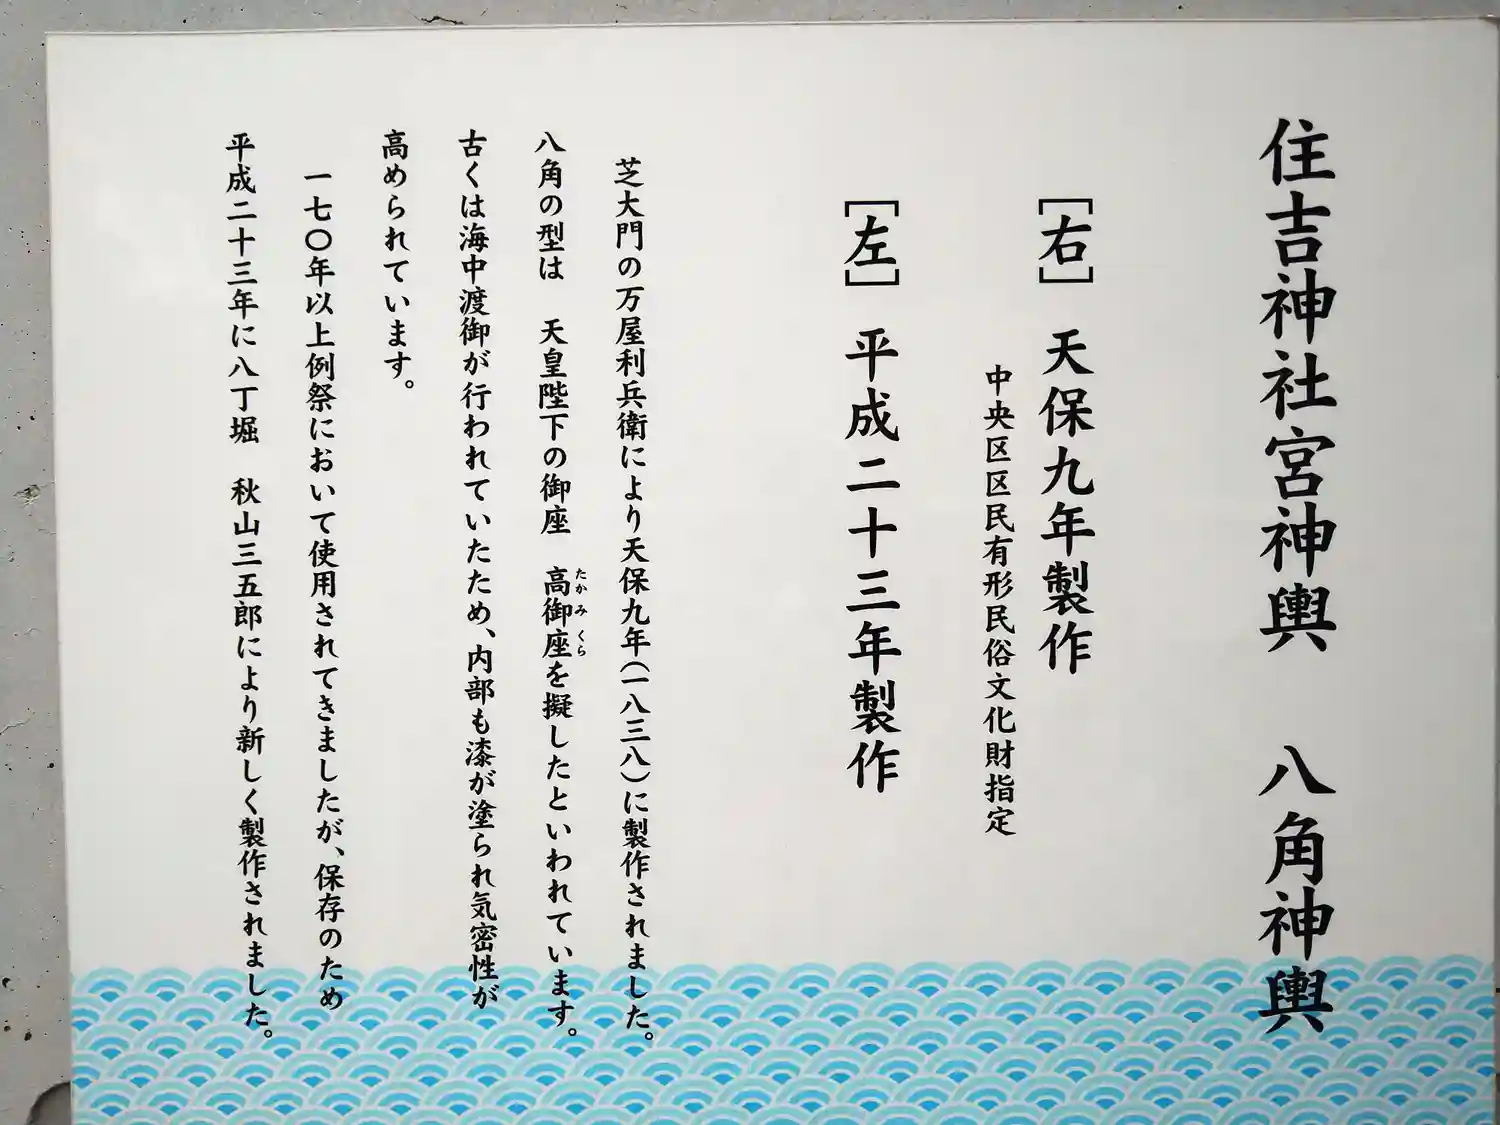 住吉神社宮神輿　八角神輿
［右］天保九年製作
中央区区民有形民俗文化財指定
［左］平成二十三年製作
芝大門の万屋利兵衛により天保九年（一八三八）に製作されました。
八角の型は　天皇陛下の御座　高御座（たかみくら）を擬したといわれています。
古くは海中渡御が行われていたため、内部も漆が塗られ気密性が
高められています。
一七〇年以上例祭において使用されてきましたが、保存のため
平成二十三年に八丁堀　秋山三五郎により新しく製作されました。